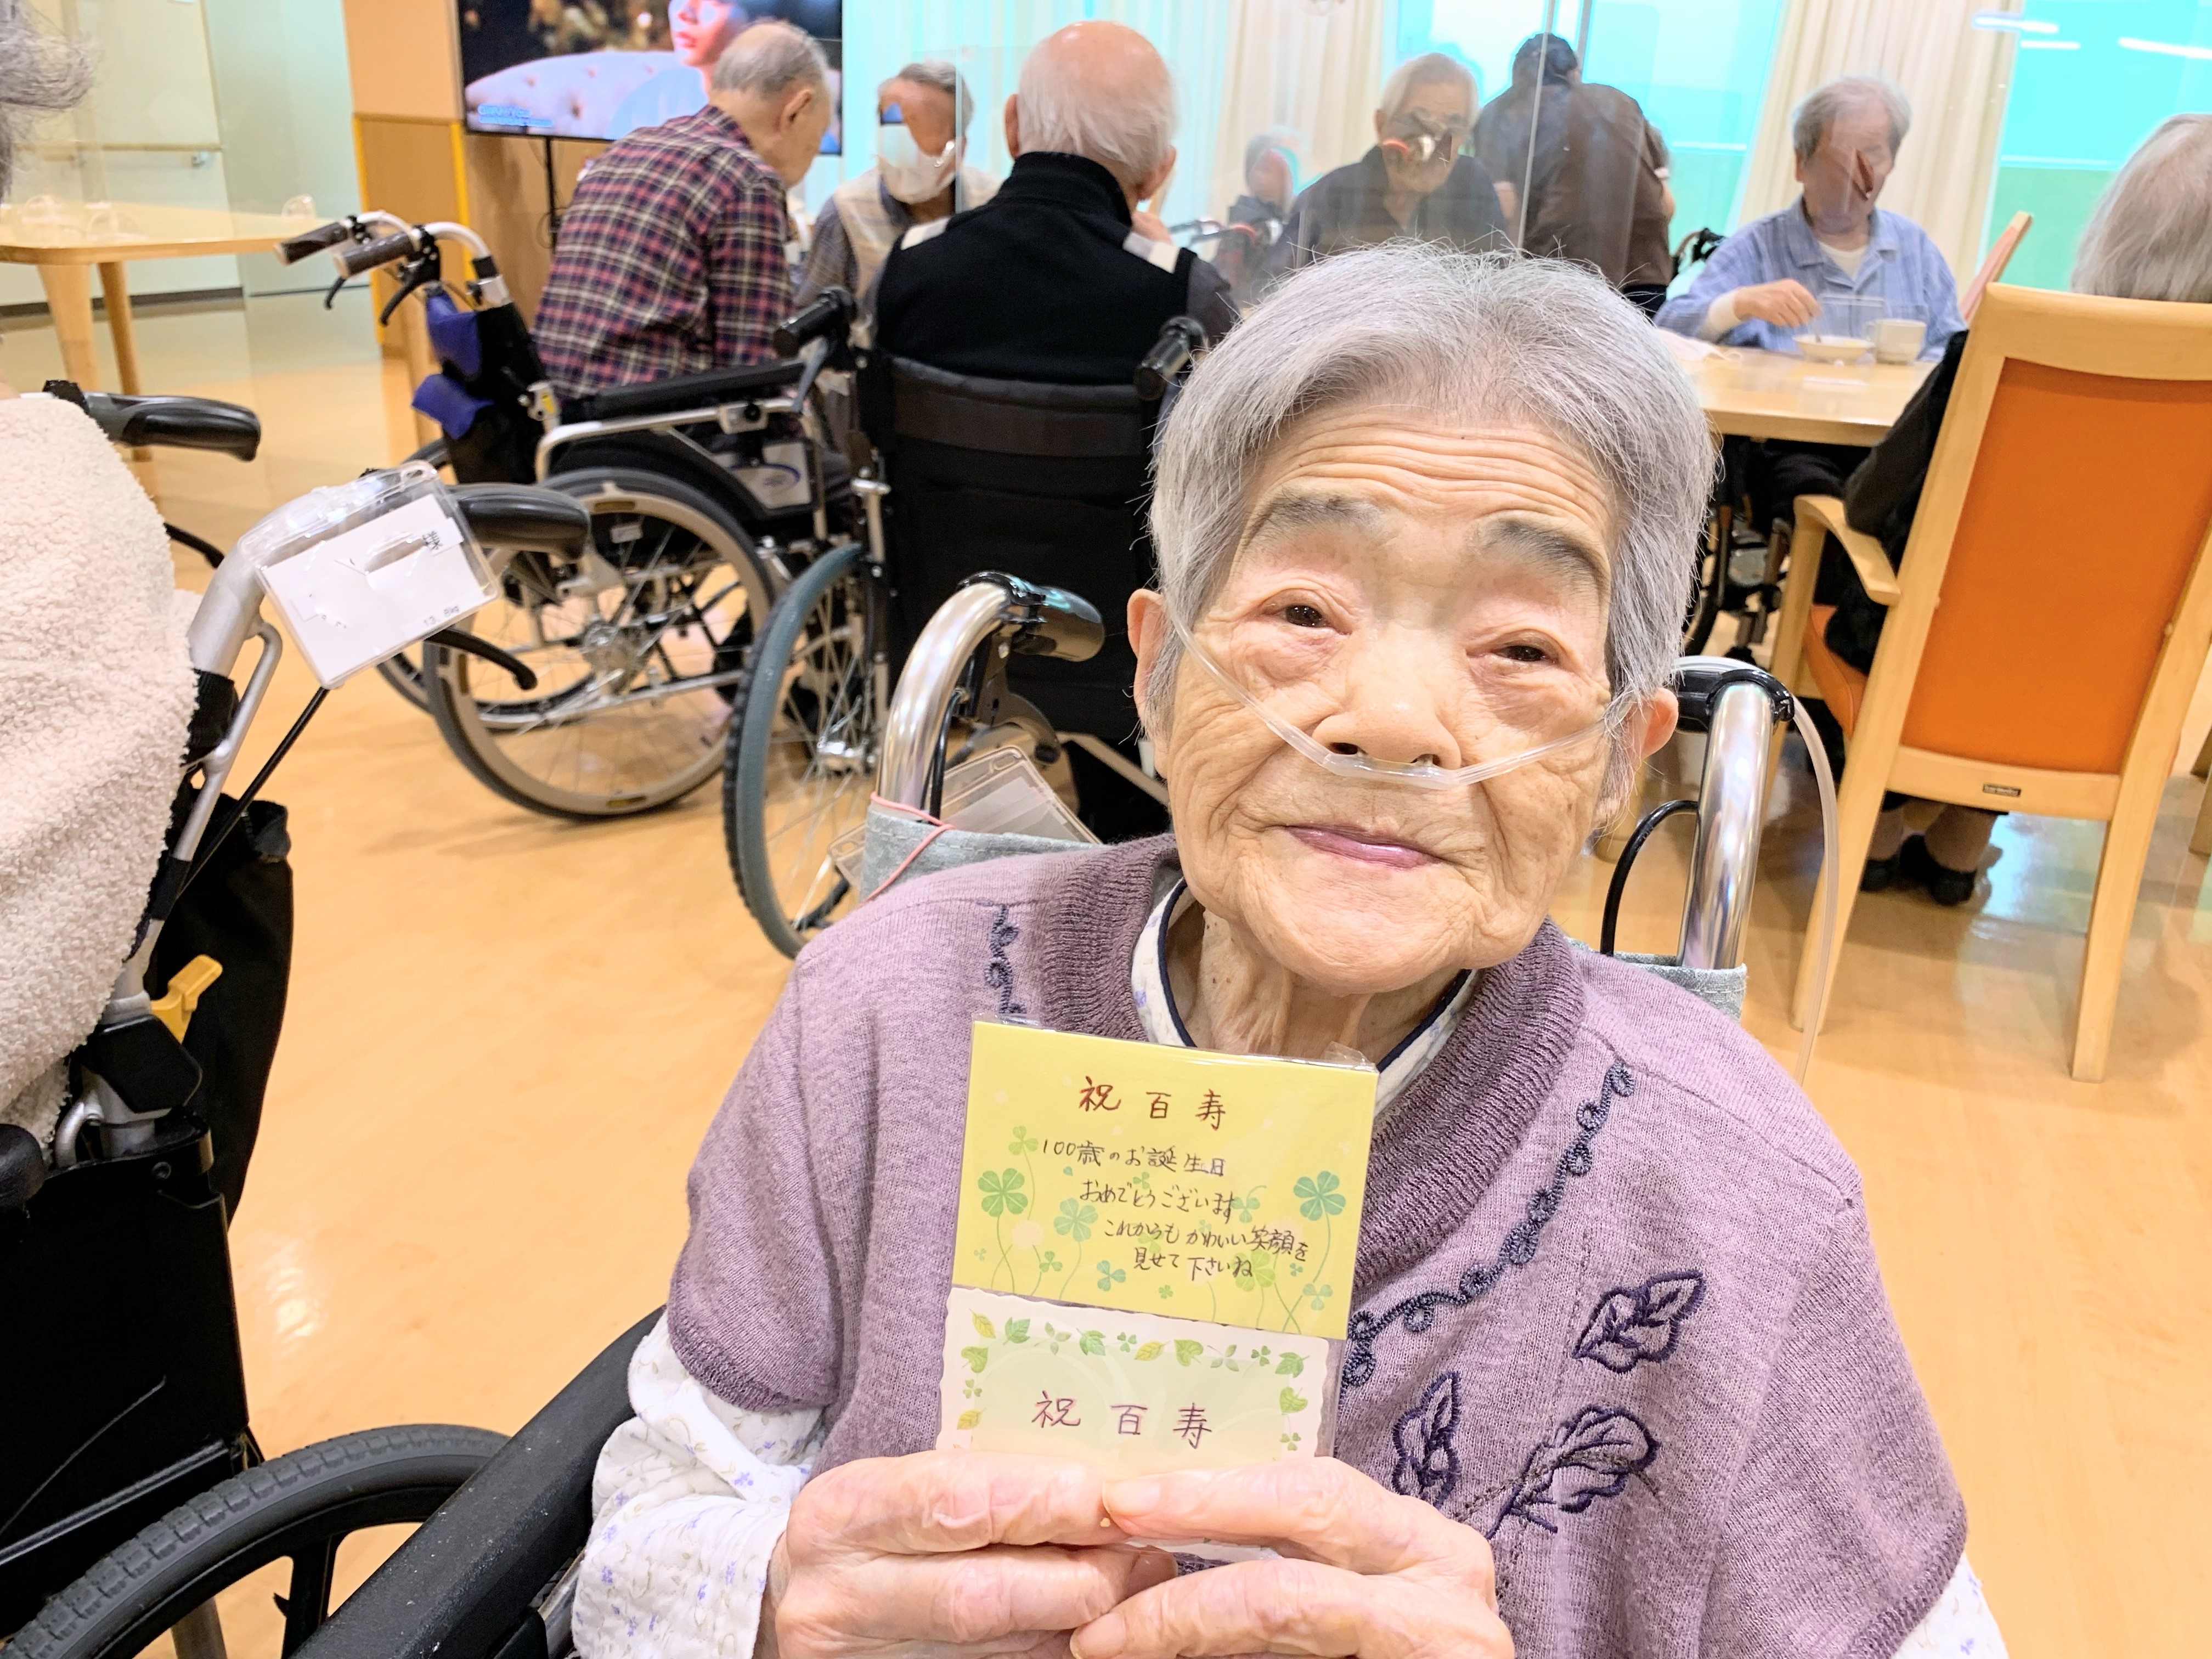 祝 百 寿
100歳のお誕生日
おめでとうございます
これからも かわいい笑顔を
見せて下さいね
祝 百 寿
様
13.8kg